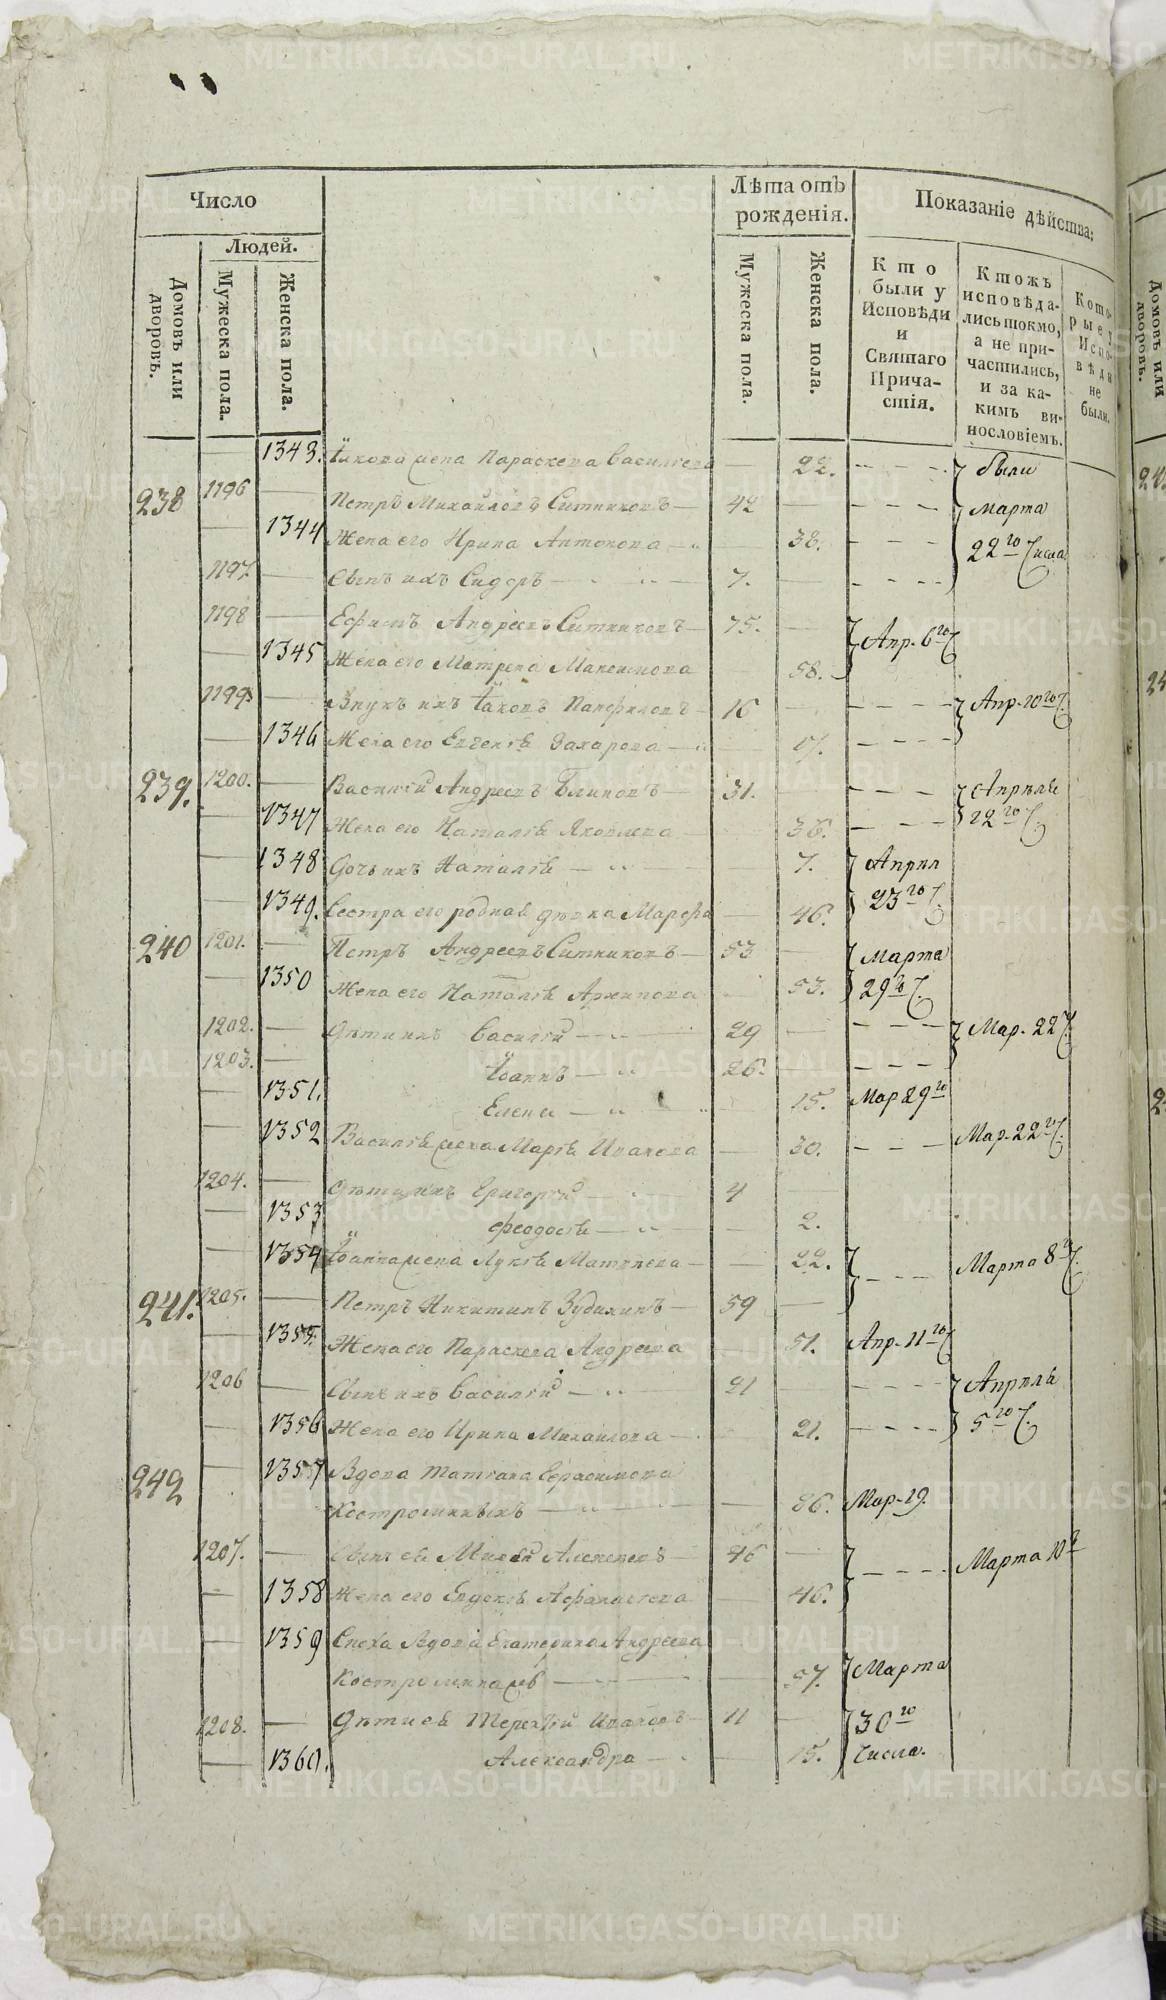 Число
Лѣта отъ рожденія.
Показаніе дѣйства:
Людей.
Домовъ или дворовъ.
Мужеска пола.
Женска пола.
Мужеска пола.
Женска пола.
Кто были у Исповѣди и Святаго Причастія.
Ктожъ исповѣдались токмо, а не причастились, и за какимъ винословіемъ.
Которые у Исповѣди не были.
1343. Іякова жена Параскева Васильева 22. были
238 1196 Петръ Михайловъ Ситниковъ 42 Марта
1344 Жена его Ирина Антонова 38. 22го Числа
1197. Сынъ ихъ Сидоръ 7.
1198 Ефимъ Андреевъ Ситниковъ 75. Апр. 6го Ч
1345 Жена его Матрена Максимова 58.
1199 Внукъ ихъ Іаковъ Панфиловъ 16 Апр. 10го Ч.
1346 Жена его Евгенія Захарова
239. 1200. Василій Андреевъ Блиновъ 31. Апрѣля
1347 Жена его Наталія Яковлева 36. 22го Ч.
1348 Дочь ихъ Наталія 7. Април
1349. Сестра его родная дѣвка Марфа 46. 23го Ч.
240 1201. Петръ Андреевъ Ситниковъ 53 Марта
1350 Жена его Наталія Архипова 53. 29го Ч.
1202. Дѣти ихъ Василій 29 Мар. 22 Ч.
1203. Іоаннъ 26.
1351. Елена 15. Мар 29го
1352 Василія жена Марія Иванова 30. Мар. 22го Ч.
1204. Дѣти ихъ Григорій 4
1353 Феодосія 2.
1354 Іоанна жена Лукія Матвѣева 22. Марта 8го Ч.
241. 1205. Петръ Никитинъ Зудихинъ 59
1355. Жена его Параскева Андреева 51. Апр. 11го Ч
1206 Сынъ ихъ Василій 21 Апрѣля
1356 Жена его Ирина Михайлова 21. 5го Ч.
242 1357 Вдова Татіана Герасимова
Костроминыхъ 86. Мар. 19.
1207. Сынъ ея Алексеевъ 46 Марта 10г
1358 Жена его Евдокія Афанасьева 46.
1359 Сноха Вдова Екатерина Андреева
57. Марта
1208. Дѣти ея Терентій Ивановъ 11 30го
1360. Александра 15. Числа.
METRIKI.GASO-URAL.RU